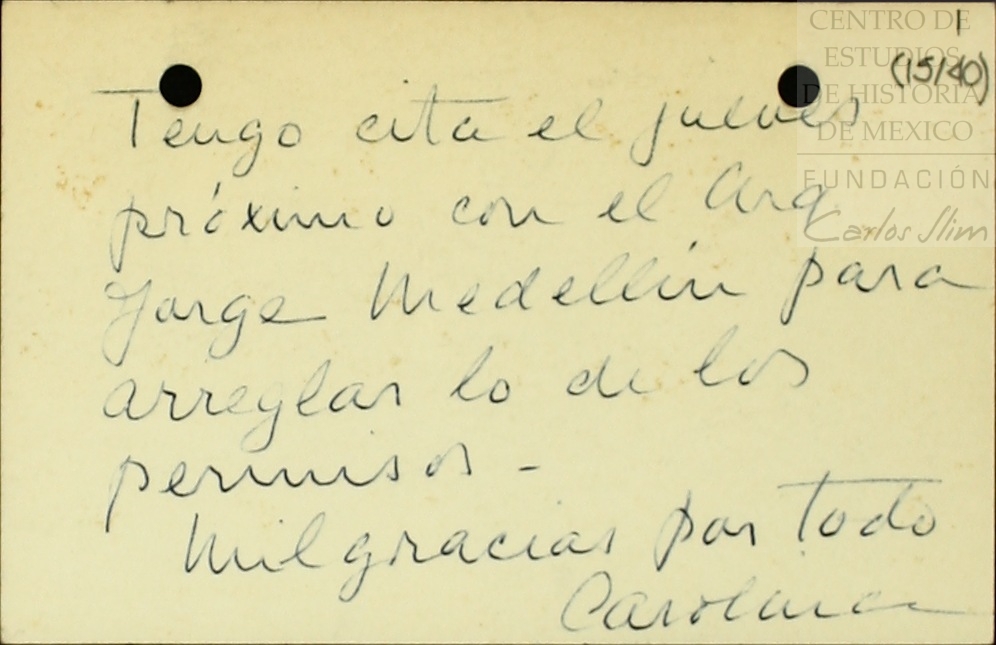 CENTRO DE
ESTUDIOS
DE HISTORIA
DE MEXICO
FUNDACIÓN
Carlos Slim
1
(15/40)
Tengo cita el jueves
próximo con el Arq
Jorge Medellín para
arreglar lo de los
permisos -
Mil gracias por todo
Carolina